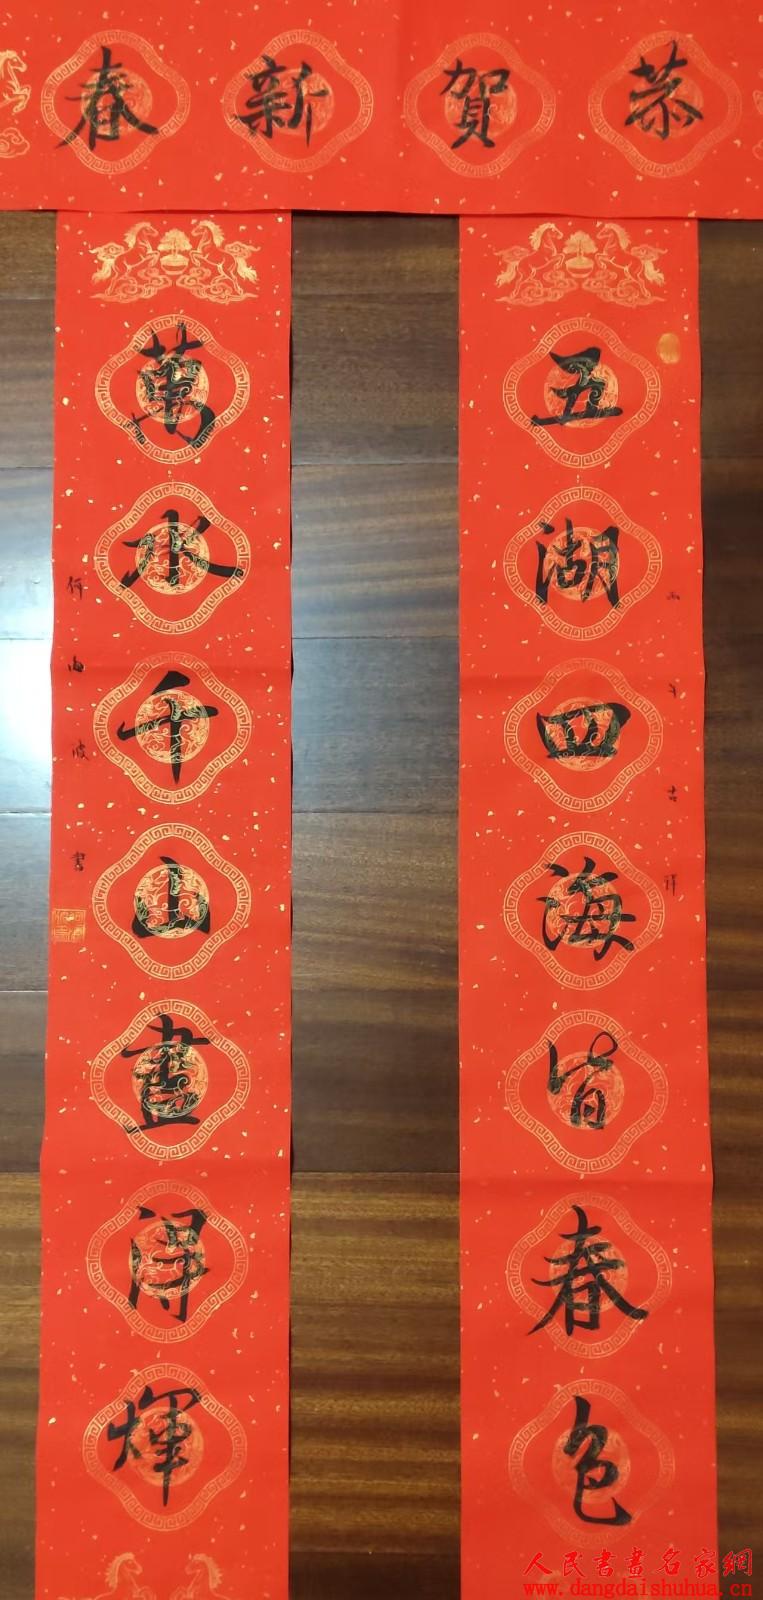 恭賀新春
五湖四海皆春色
丙午吉祥
萬水千山盡得輝
何海波書
人民書畫名家網
www.dangdaishuhua.cn